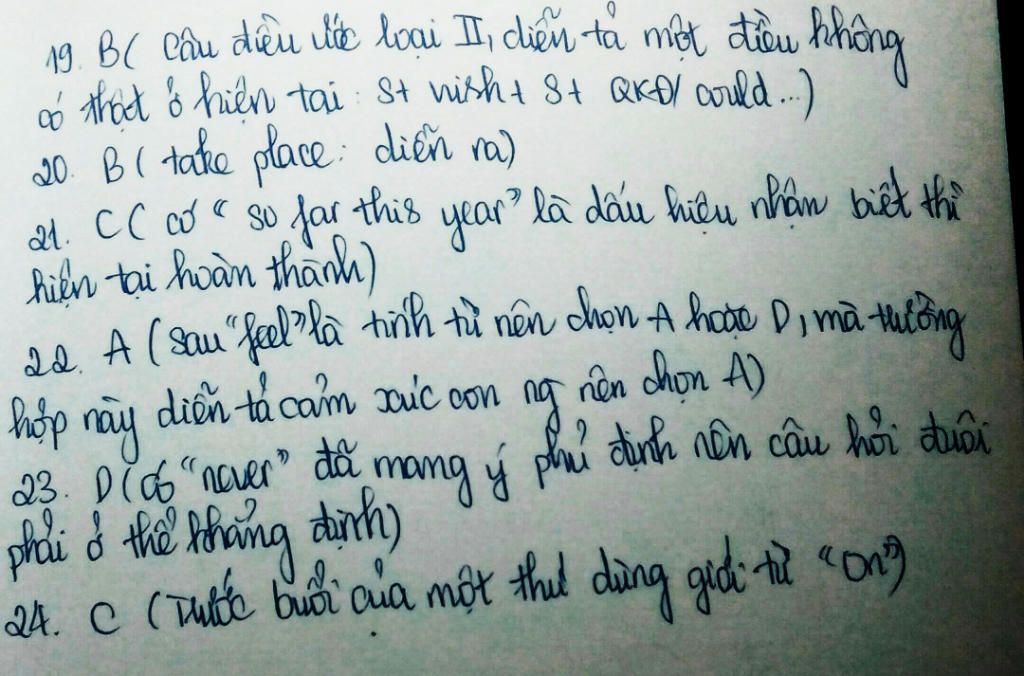 19. B( Câu điều ước loại II, diễn tả một điều không
có thật ở hiện tại: S+ wish + S+ QKĐ/ could...)
20. B( take place: diễn ra)
21. C( có “ so far this year” là dấu hiệu nhận biết thì
hiện tại hoàn thành)
22. A (sau “feel” là tính từ nên chọn A hoặc D, mà trường
hợp này diễn tả cảm xúc con ng nên chọn A)
23. D( có “never” đã mang ý phủ định nên câu hỏi đuôi
phải ở thể khẳng định)
24. C (Trước buổi của một thứ dùng giới từ “on”)